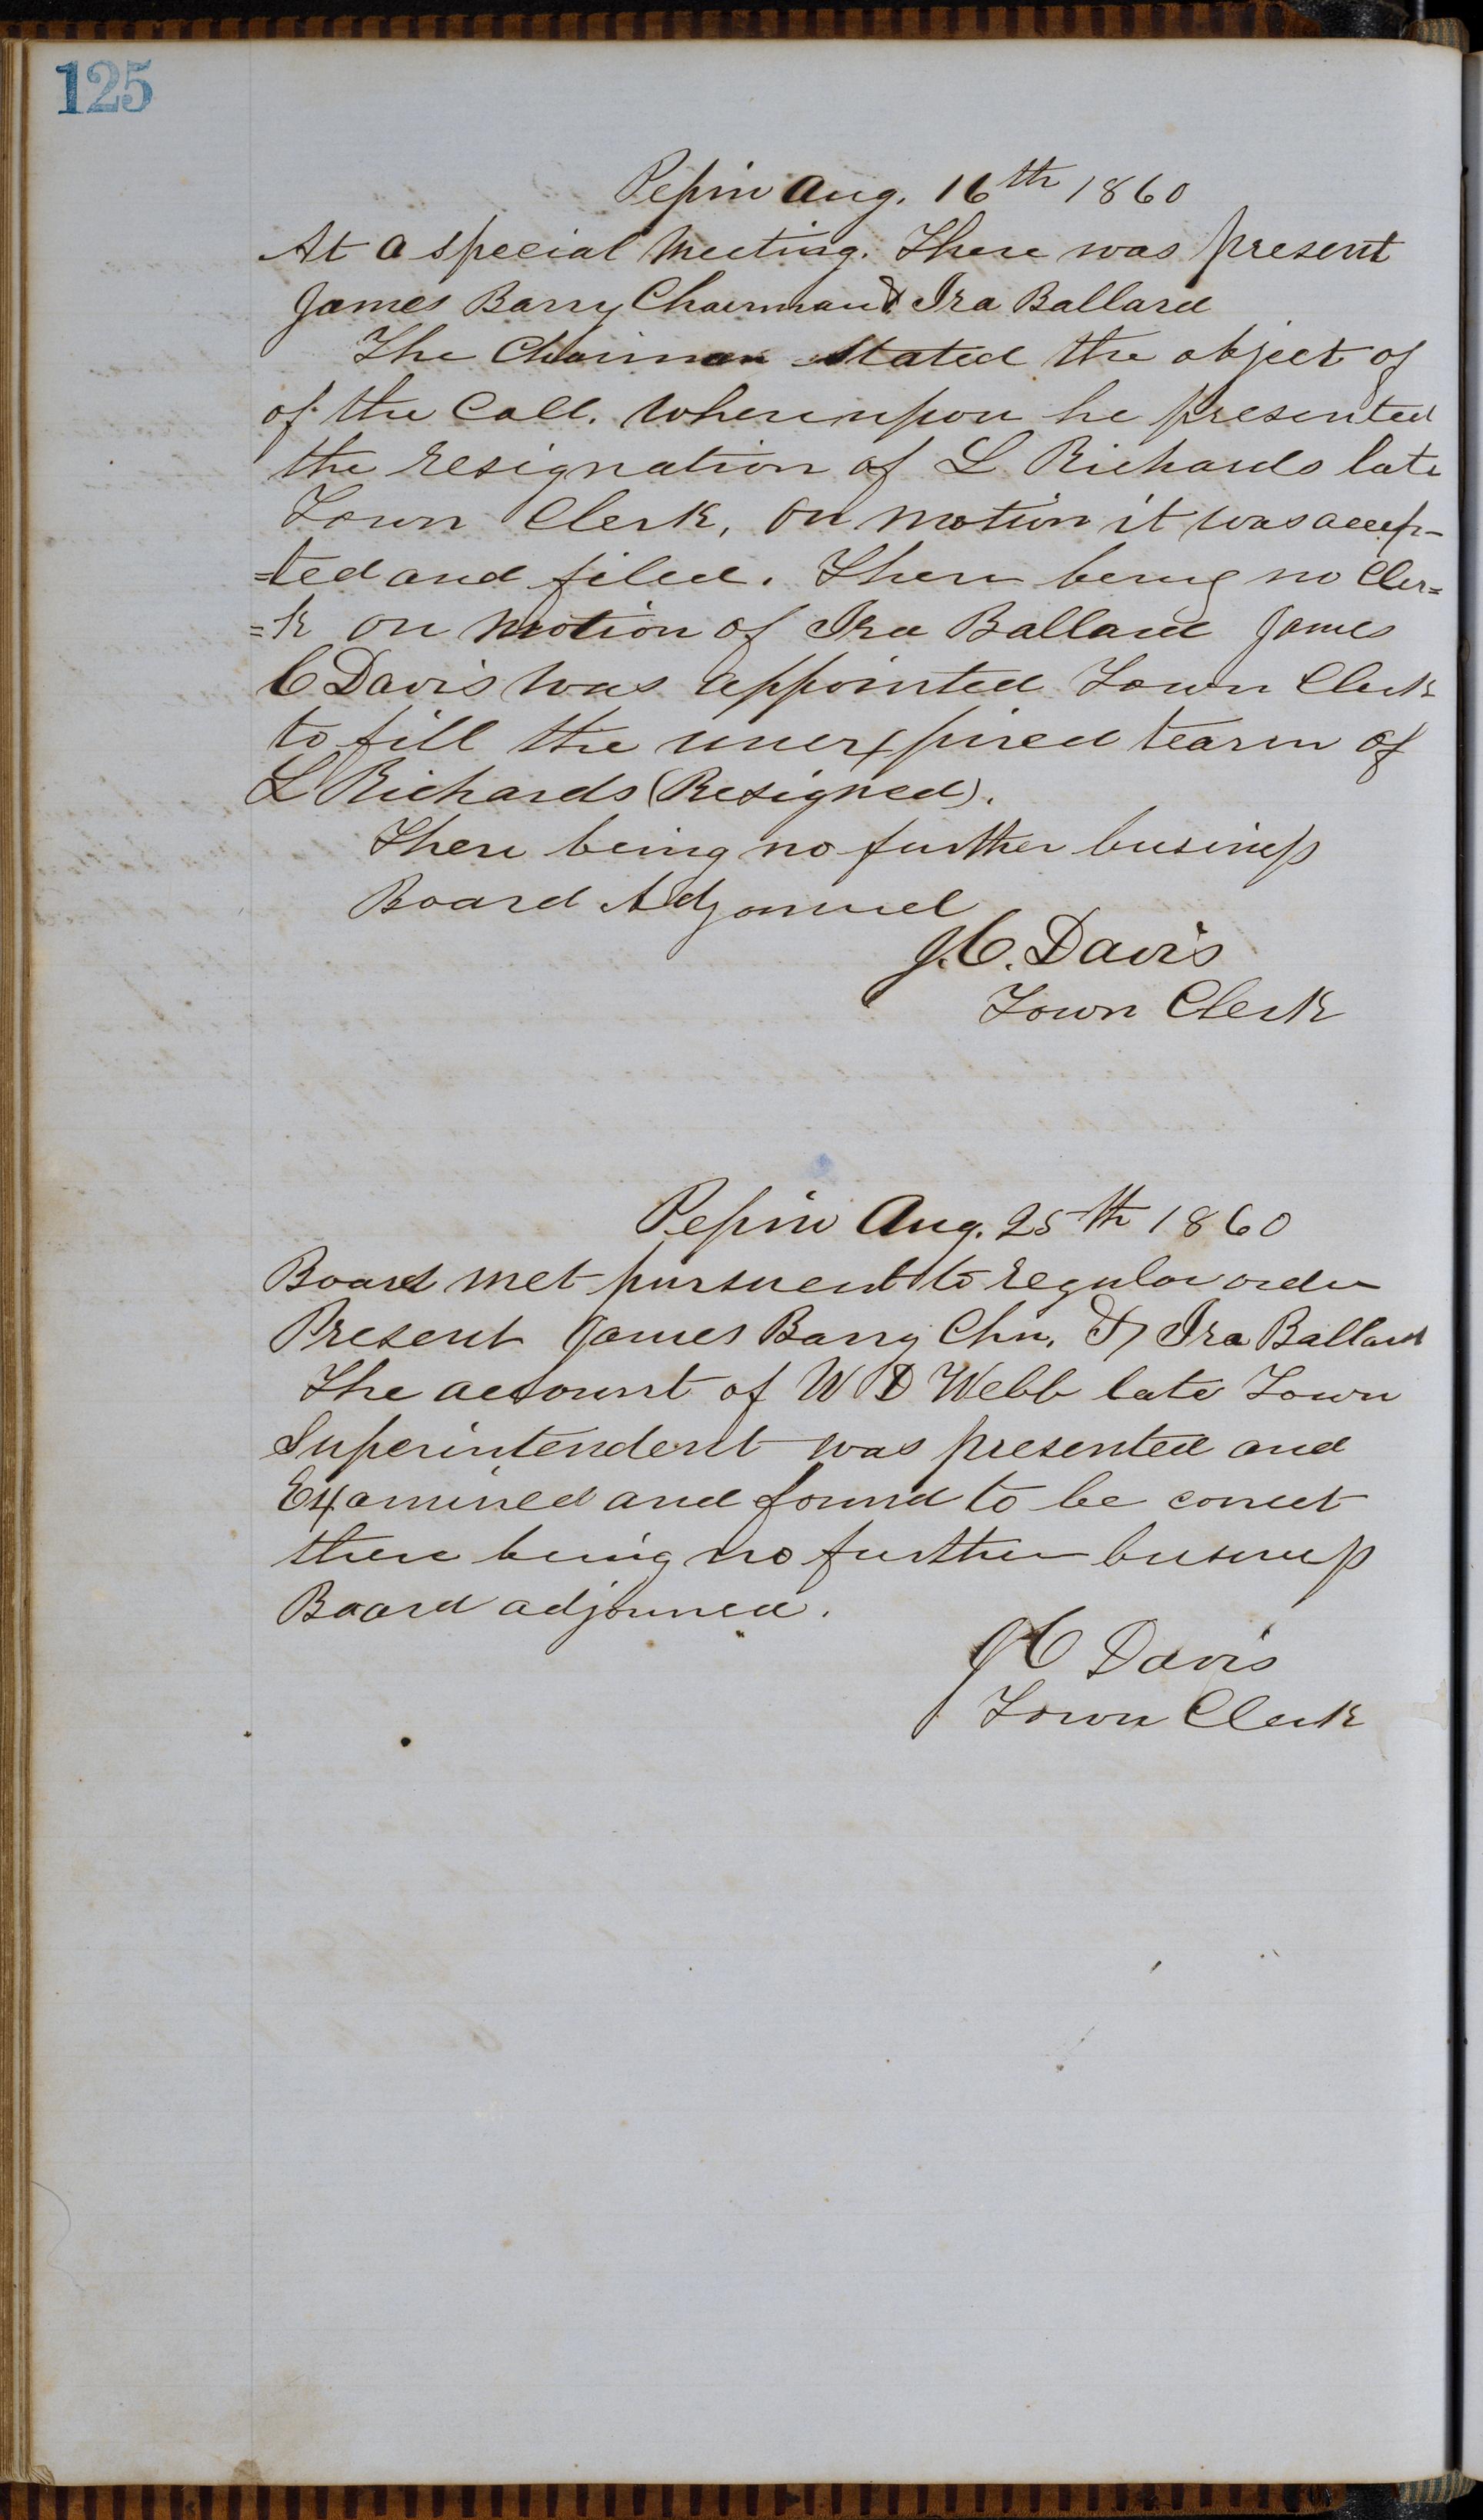 125
Pepin Aug. 16th 1860
At a special meeting. There was present
James Barry Chairman & Ira Ballard
The Chairman stated the object of
of the Call. Whereupon he presented
the resignation of L Richards late
Town Clerk, on motion it was accep-
=ted and filed. There being no Cler=
=k on motion of Ira Ballard James
C Davis was appointed Town Clerk
to fill the unexpired tearm of
L Richards (Resigned).
There being no further business
Board Adjourned
J. C. Davis
Town Clerk
Pepin Aug. 25th 1860
Board met pursuent to regular order
Present James Barry Chn. & Ira Ballard
The account of W D Webb late Town
Superintendent was presented and
Examined and found to be correct
there being no further business
Board adjourned.
J C Davis
Town Clerk